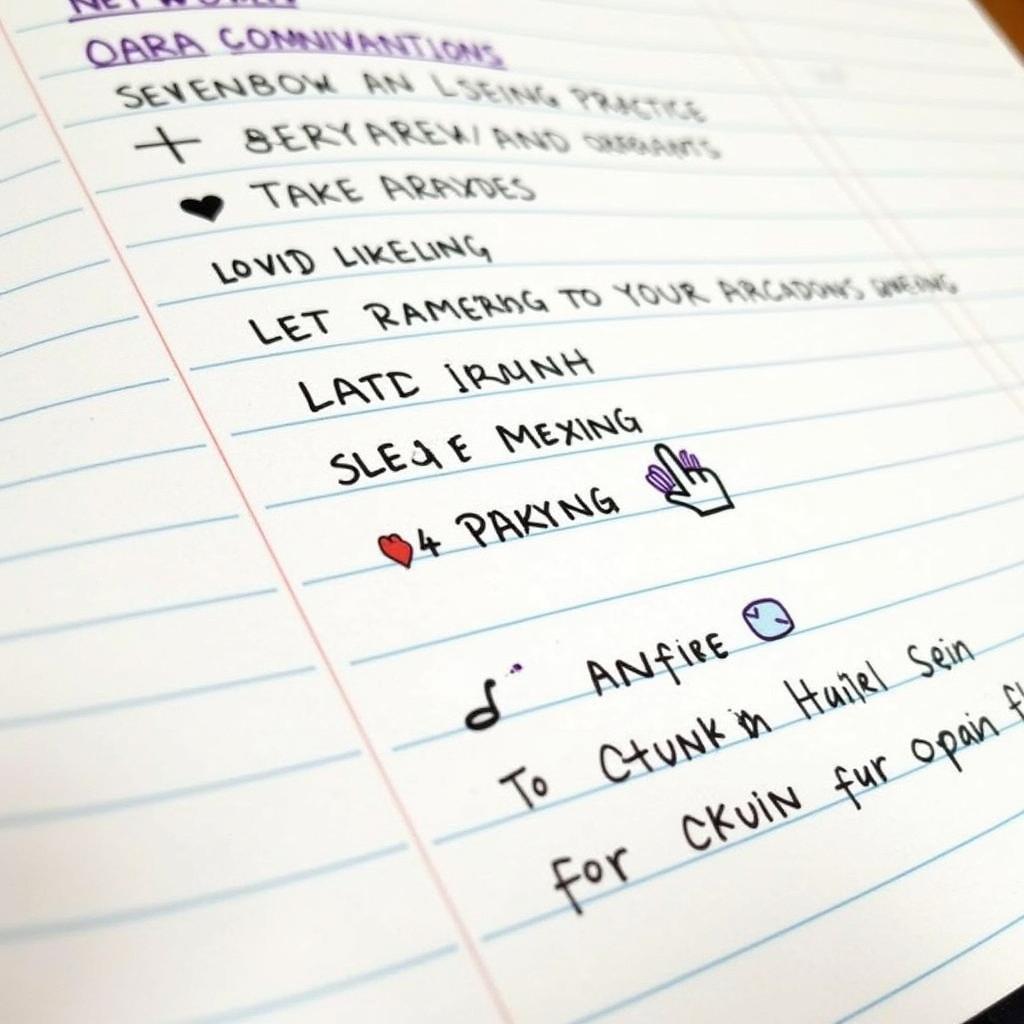 OARA COMNIVANTIONS
SEVENBOW AN LSEING PRACTICE
BERYAREW/AND
TAKE ARAXDES
LOVID LIKELING
LET RAMERING TO YOUR ARCADONS
LATC IRUNH
SLEAE MEXING
4 PAKYNG
ANFIRE
To CTUNK in Huijel Sein
For CKUIN fur opain